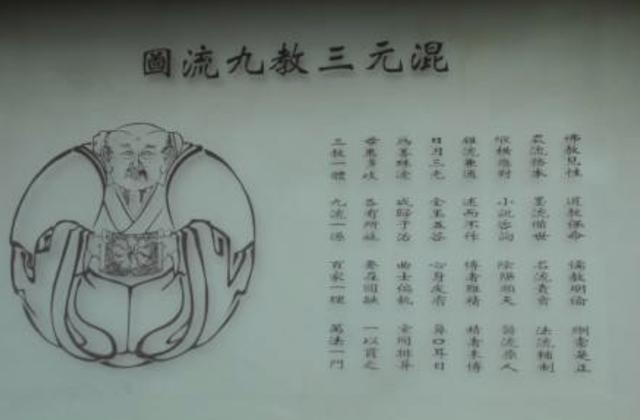 混元三教九流圖
佛教見性 道教保命 儒教明倫 綱常是正
農流務本 墨流備世 名流責實 法流輔制
縱橫應對 小說咨詢 陰陽順天 醫流原人
雜流兼通 述而不作 博者難精 精者未博
日月三光 金玉五谷 心身皮膚 鼻口耳目
為善殊途 咸歸于治 曲士偏執 黨同排異
毋患多歧 各有所施 要在圓融 一以貫之
三教一體 九流一源 百家一理 萬法一門